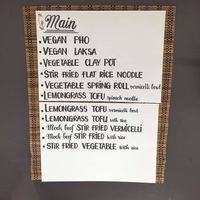 Main
• VEGAN PHO
• VEGAN LAKSA
• VEGETABLE CLAY POT
• STIR FRIED FLAT RICE NOODLE
• VEGETABLE SPRING ROLL vermicelli bowl
• LEMONGRASS TOFU spinach noodle
• LEMONGRASS TOFU vermicelli bowl
• LEMONGRASS TOFU with rice
• Mock beef STIR FRIED VERMICELLI
• Mock beef STIR FRIED with rice
• STIR FRIED VEGETABLE with rice